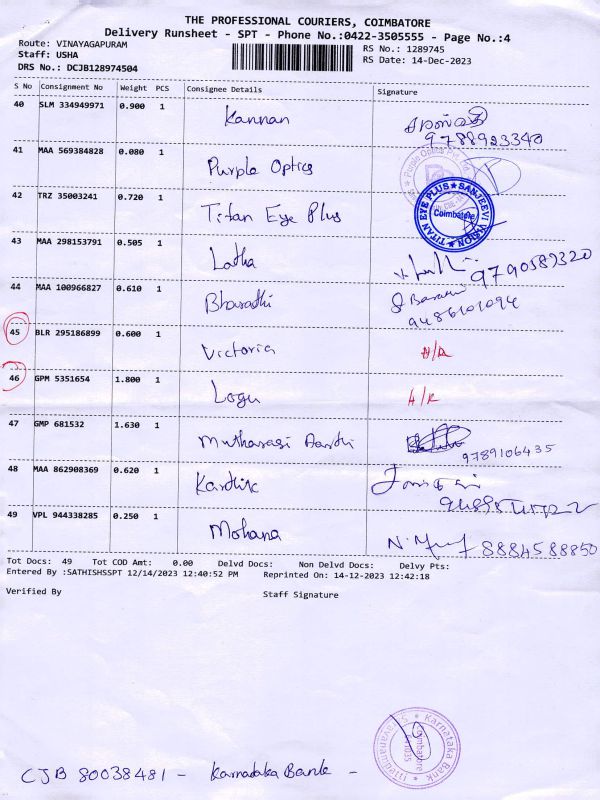 THE PROFESSIONAL COURIERS, COIMBATORE
Delivery Runsheet - SPT - Phone No.:0422-3505555 - Page No.:4
Route: VINAYAGAPURAM
Staff: USHA
DRS No.: DCJB128974504
RS No.: 1289745
RS Date: 14-Dec-2023
S No Consignment No Weight PCS Consignee Details Signature
40 SLM 334949971 0.900 1 Kannan
9788923340
41 MAA 569384828 0.080 1 Purple Optics
42 TRZ 35003241 0.720 1 Titan Eye Plus
TITAN EYE PLUS ★ SANJEEVI VISION ★
Coimbatore
43 MAA 298153791 0.505 1 Latha 9790589320
44 MAA 100966827 0.610 1 Bharathi
9486101094
45 BLR 295186899 0.600 1 Victoria
46 GPM 5351654 1.800 1 Logu
47 GMP 681532 1.630 1 Mutharasi Aarthi 9789106435
48 MAA 862908369 0.620 1 Karthik
49 VPL 944338285 0.250 1 Mohana 8884588850
Tot Docs: 49 Tot COD Amt: 0.00 Delvd Docs: Non Delvd Docs: Delvy Pts:
Entered By :SATHISHSSPT 12/14/2023 12:40:52 PM Reprinted On: 14-12-2023 12:42:18
Verified By Staff Signature
Karnataka Bank
Coimbatore
CJB 80038481 - Karnataka Bank -